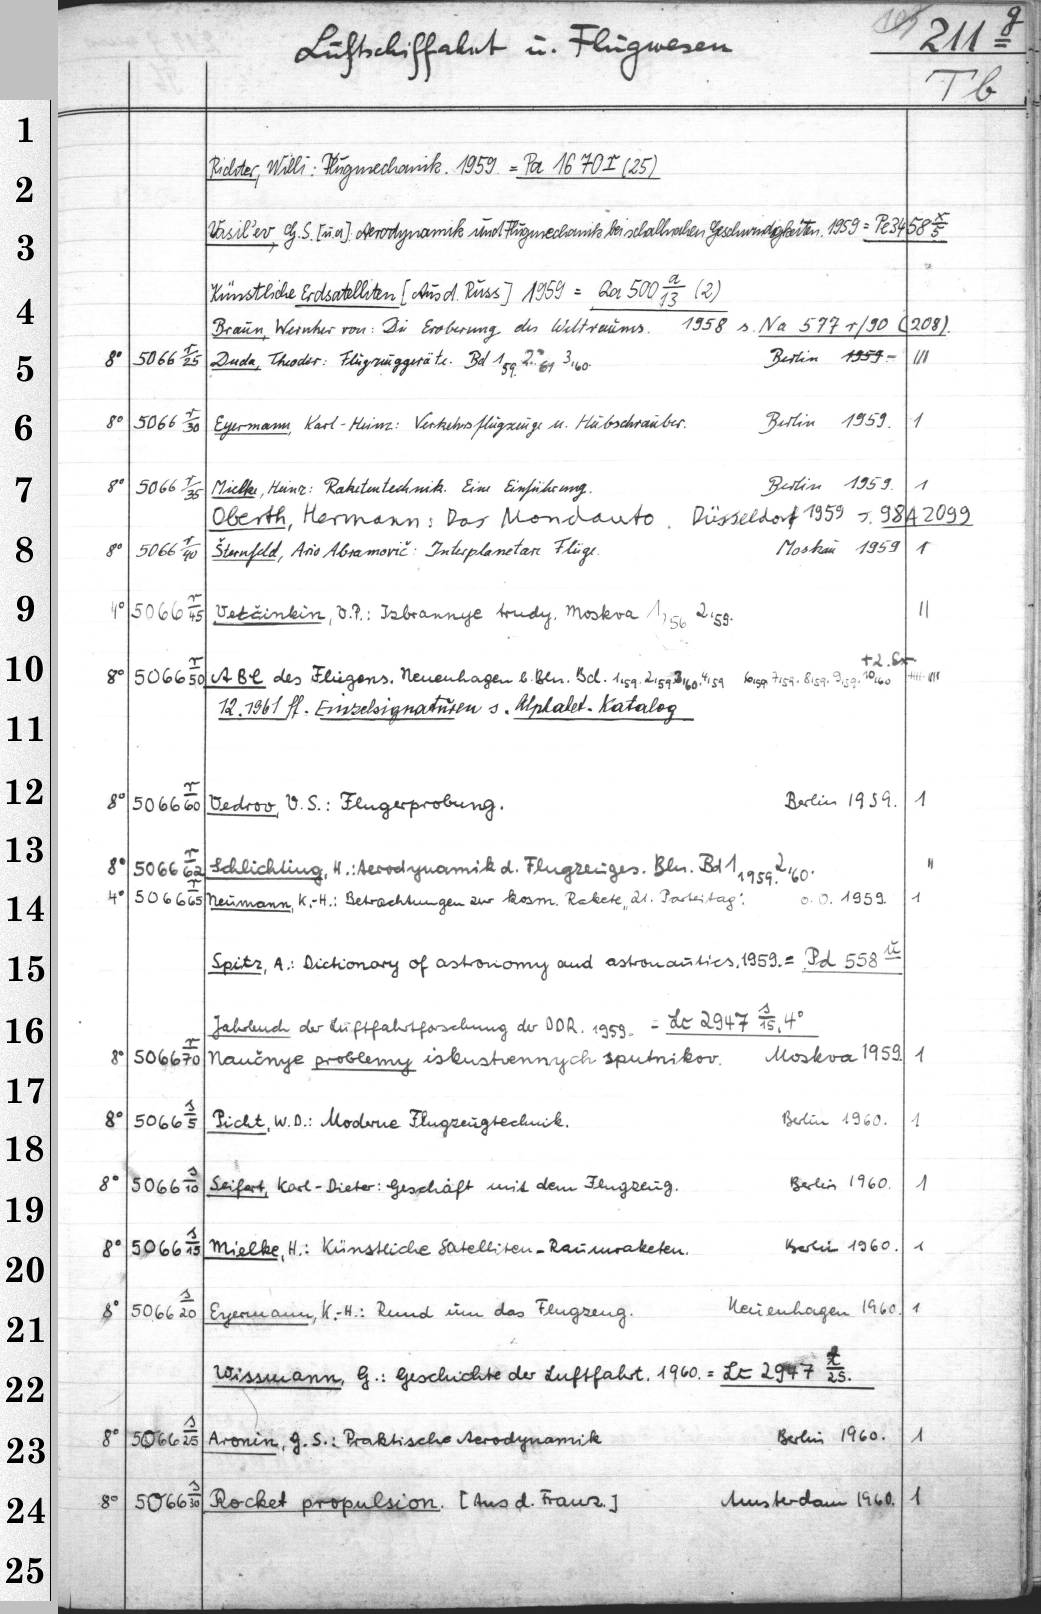 105 211 g
Luftschiffahrt u. Flugwesen
Tb
1
Richter, Willi: Flugmechanik. 1959. = Pa 1670 r (25)
2
Vasil'ev, G.S. [u.a.] Aerodynamik und Flugmechanik bei schallnahen Geschwindigkeiten. 1959 = Pe 3458 x/5
3
Künstliche Erdsatelliten [Aus d. Russ] 1959 = Qa 500 a/13 (2)
4
Braun, Wernher von: Die Eroberung des Weltraums. 1958 s. Na 577 r/90 (208).
5
8° 5066 r/25 Duda, Theodor: Flugzeuggeräte. Bd 1,59. 2. 61 3,60. Berlin 1959.- III
6
8° 5066 r/30 Eyermann, Karl-Heinz: Verkehrsflugzeuge u. Hubschrauber. Berlin 1959. 1
7
8° 5066 r/35 Mielke, Heinz: Raketentechnik. Eine Einführung. Berlin 1959. 1
Oberth, Hermann: Das Mondauto. Düsseldorf 1959 s. 98 A 2099
8
8° 5066 r/40 Šternfeld, Ario Abramovič: Interplanetare Flüge. Moskau 1959 1
9
4° 5066 r/45 Vetčinkin, V.P.: Izbrannye trudy. Moskva 1,56 2,59. II
10
+2. Ex
8° 5066 r/50 ABC des Fliegens. Neuenhagen b. Bln. Bd. 1,59. 2,59. 3,60. 4,59 6,59. 7,59. 8,59. 9,59. 10,60
12.1961 ff. Einzelsignaturen s. Alphabet-Katalog
11
12
8° 5066 r/60 Vedrov, V.S.: Flugerprobung. Berlin 1959. 1
13
8° 5066 r/62 Schlichting, H.: Aerodynamik d. Flugzeuges. Bln. Bd 1 1959. 2,60. II
14
4° 5066 r/65 Neumann, K.-H.: Betrachtungen zur kosm. Rakete „21. Parteitag". o.O. 1959. 1
15
Spitz, A.: Dictionary of astronomy and astronautics. 1959. = Pd 558 u
16
Jahrbuch der Luftfahrtforschung der DDR. 1959- = Lc 2947 s/15, 4°
8° 5066 r/70 Naučnye problemy iskustvennych sputnikov. Moskva 1959. 1
17
8° 5066 s/5 Picht, W.D.: Moderne Flugzeugtechnik. Berlin 1960. 1
18
8° 5066 s/10 Seifert, Karl-Dieter: Geschäft mit dem Flugzeug. Berlin 1960. 1
19
8° 5066 s/15 Mielke, H.: Künstliche Satelliten-Raumraketen. Berlin 1960. 1
20
8° 5066 s/20 Eyermann, K.-H.: Rund um das Flugzeug. Neuenhagen 1960. 1
21
22
Wissmann, G.: Geschichte der Luftfahrt. 1960. = Lc 2947 t/25.
23
8° 5066 s/25 Aronin, G.S.: Praktische Aerodynamik Berlin 1960. 1
24
8° 5066 s/30 Rocket propulsion. [Aus d. Franz.] Amsterdam 1960. 1
25